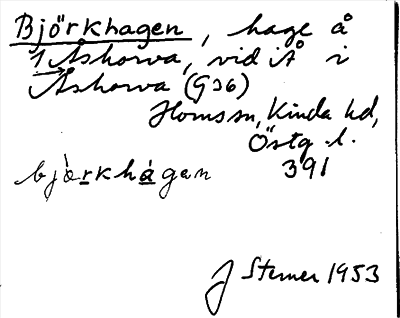 Björkhagen, hage å
1 Åshorva, vid Å i
Åshorva (G36)
Horns sn, Kinda hd,
Östg. l.
björkhágen 391
J Sterner 1953